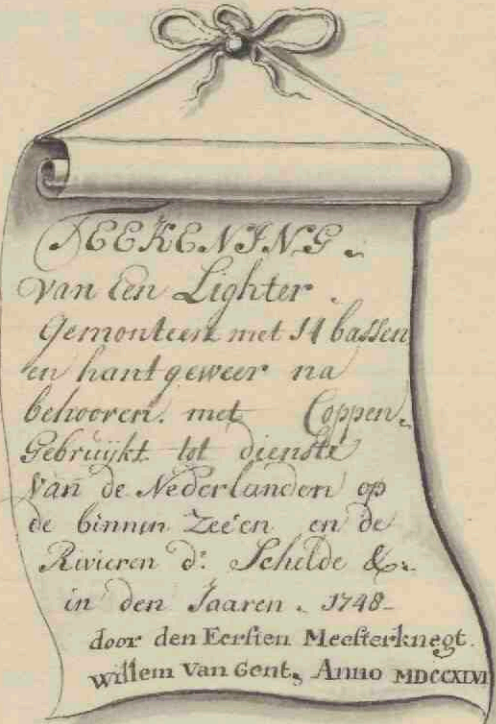 TEEKENING.
van Een Lighter.
Gemonteert met 14 bassen
en hant geweer na
behooren. met Coppen.
Gebruijkt tot dienste
van de Nederlanden op
de binnen Zeeen en de
Rivieren d: Schelde &.
in den Jaaren. 1748
door den Eersten Meesterknegt.
Willem Van Gent, Anno MDCCXLVI